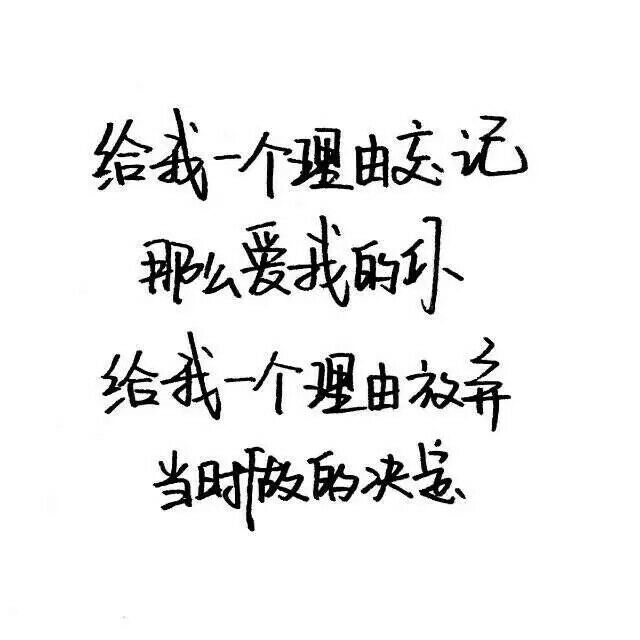 给我一个理由忘记
那么爱我的你
给我一个理由放弃
当时做的决定